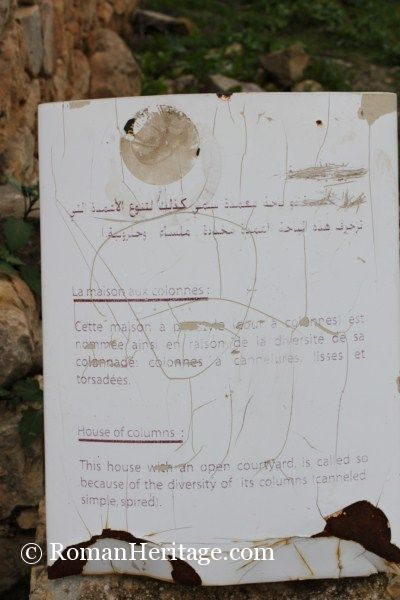 و باحة مبلطة سمي كذلك لتنوع الأعمدة التي
تزخرف هذه الباحة أعمدة مخددة، ملساء وحلزونية
La maison aux colonnes :
Cette maison à (cour à colonnes) est
nommée ainsi en raison de la diversité de sa
colonnade: colonnes à cannelures, lisses et
torsadées.
House of columns :
This house with an open courtyard, is called so
because of the diversity of its columns (canneled
simple, spired).
© RomanHeritage.com